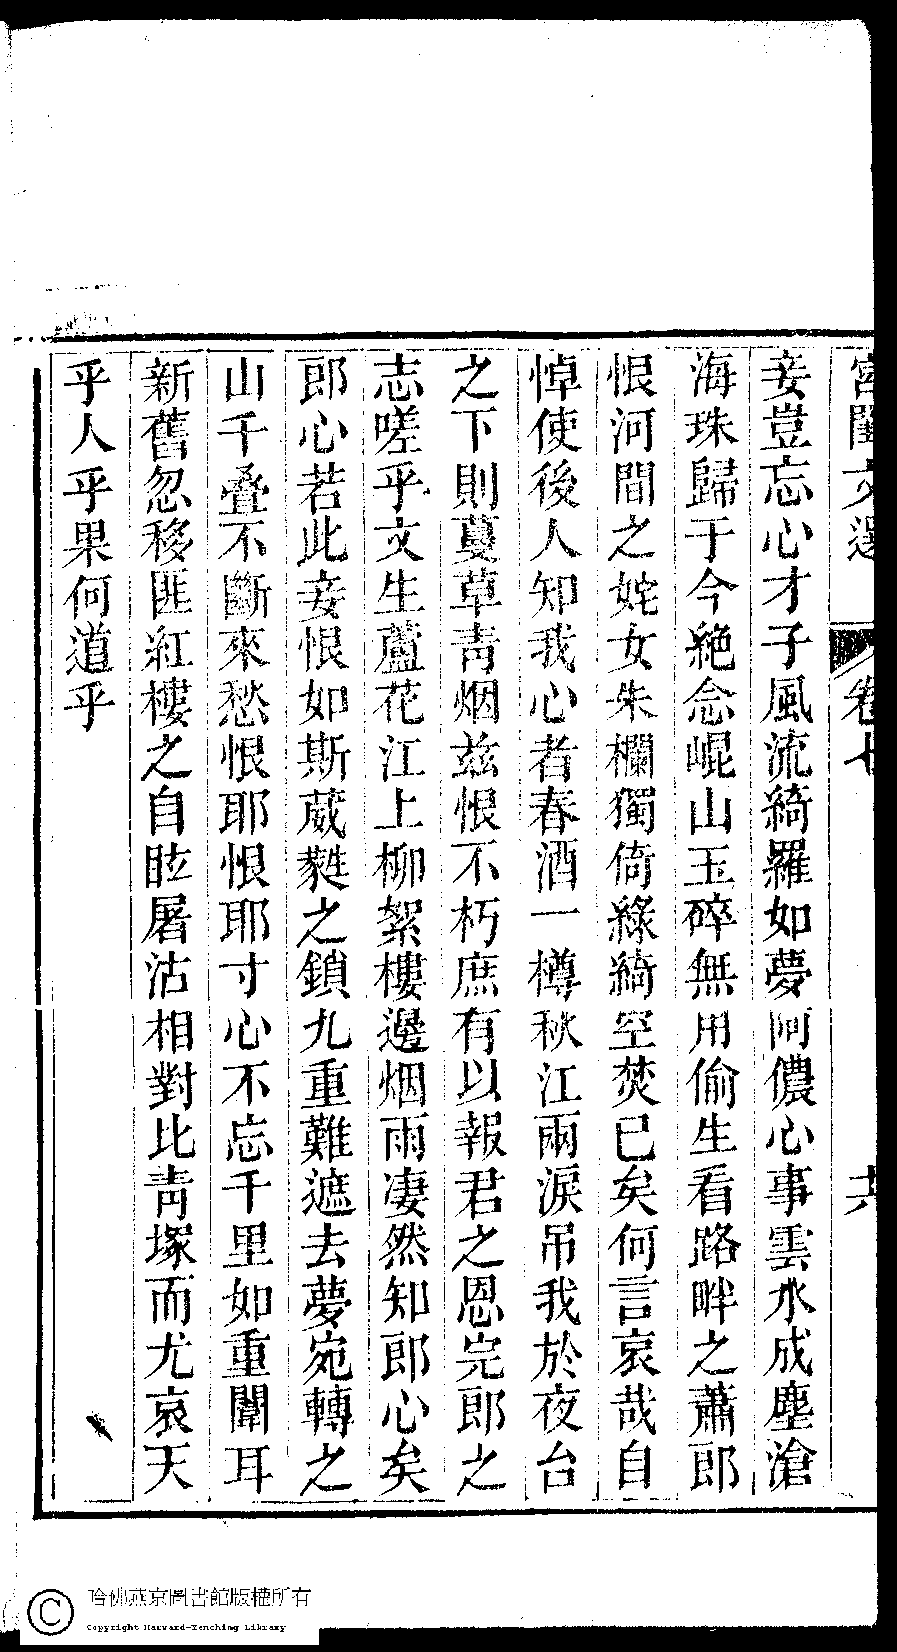 宮閨文選 卷七 六
妾豈忘心才子風流綺羅如夢阿儂心事雲水成塵滄
海珠歸于今絶念崐山玉碎無用偷生看路畔之蕭郎
恨河間之姹女朱欄獨倚綠綺空焚已矣何言哀哉自
悼使後人知我心者春酒一樽秋江兩淚吊我於夜台
之下則蔓草靑烟兹恨不朽庶有以報君之恩完郎之
志嗟乎文生蘆花江上柳絮樓邊烟雨凄然知郎心矣
郎心若此妾恨如斯葳蕤之鎖九重難遮去夢宛轉之
山千叠不斷來愁恨耶恨耶寸心不忘千里如重闈耳
新舊忽移匪紅樓之自眩屠沽相對比靑塚而尤哀天
乎人乎果何道乎
哈佛燕京圖書館版權所有
Copyright Harvard-Yenching Library